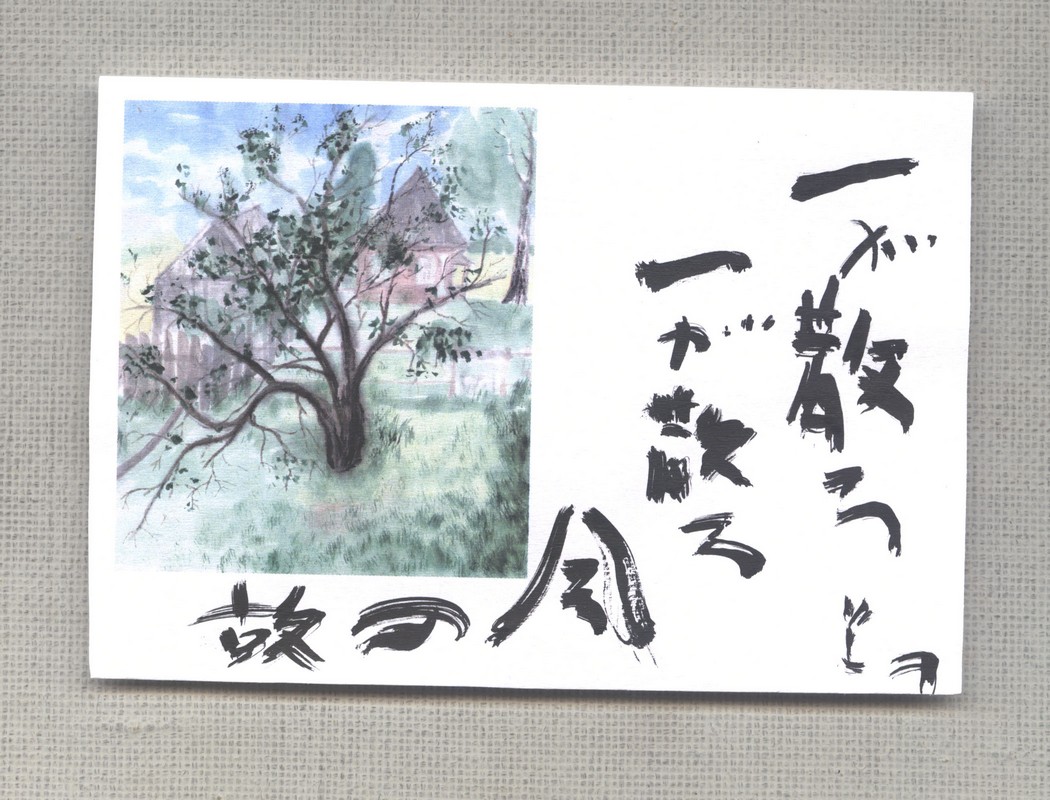 一が散うと
一が散る
風の故